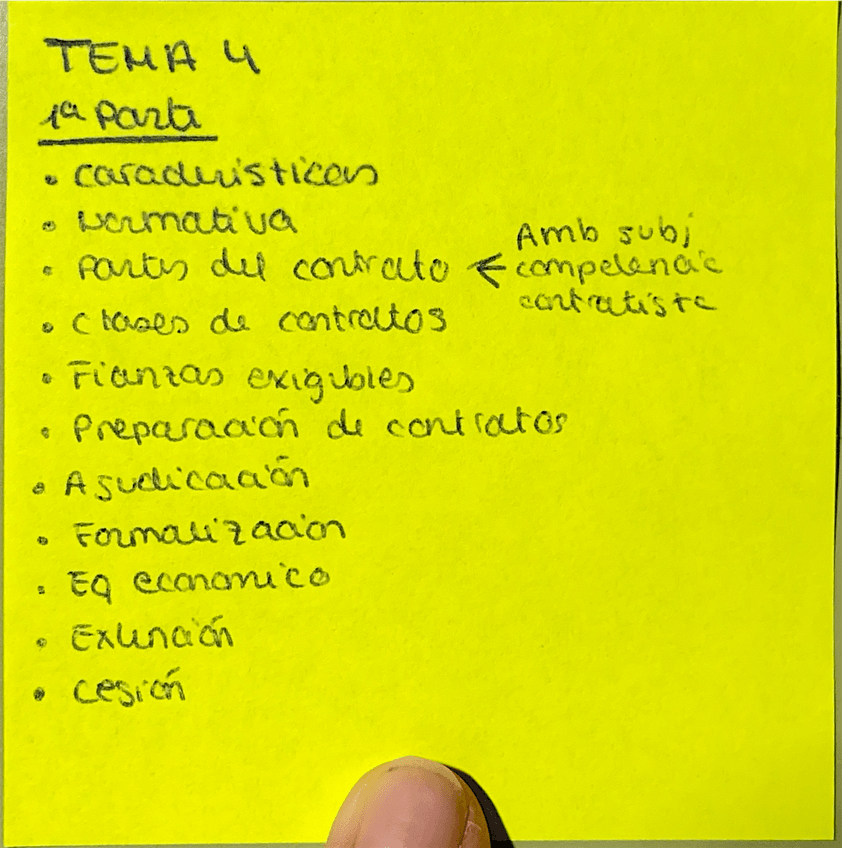 TEMA 4
1ª Parte
• Características
• Normativa
• Partes del contrato ← Amb subj
competencia
contratista
• Clases de contratos
• Fianzas exigibles
• Preparación de contratos
• Ajudicación
• Formalización
• Eq economico
• Extinción
• Cesión